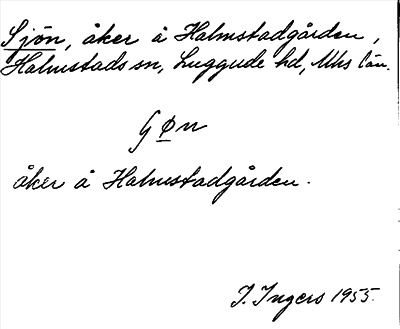 Sjön, åker å Halmstadgården,
Halmstads sn, Luggude hd, Mhs län.
åker å Halmstadgården.
I. Ingers 1955.